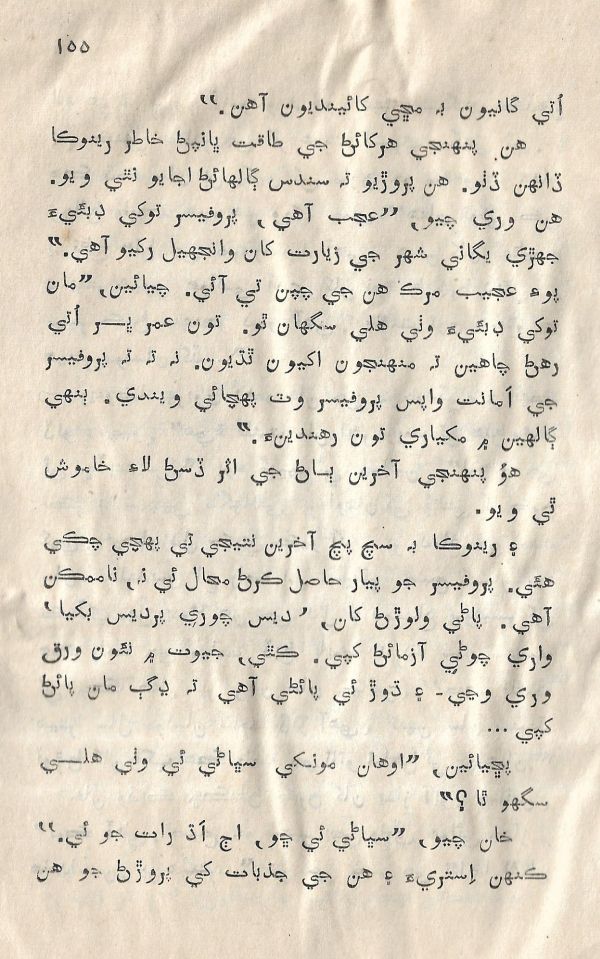 ١٥٥
اُتي گانيون بہ مڇي کائينديون آهن.“
هن پنهنجي هرکائڻ جي طاقت ڀانپڻ خاطر رينوڪا
ڏانهن ڏٺو. هن پروڙيو تہ سندس ڳالهائڻ اجايو نٿي ويو.
هن وري چيو، ”عجب آهي، پروفيسر توکي دبئيءَ
جهڙي يگاني شهر جي زيارت کان وانجهيل رکيو آهي.“
پوءِ عجيب مرڪ هن جي چپن تي آئي. چيائين، ”مان
توکي دبئيءَ وٺي هلي سگهان ٿو. تون عمر ڀر اُتي
رهڻ چاهين تہ منهنجون اکيون ٿڌيون. نہ تہ تہ پروفيسر
جي اَمانت واپس پروفيسر وٽ پهچائي ويندي. ٻنهي
ڳالهين ۾ مکياري تون رهندينءَ.“
هوُ پنهنجي آخرين ٻاڻ جي اثر ڏسڻ لاءِ خاموش
ٿي ويو.
۽ رينوڪا بہ سچ پچ آخرين نتيجي تي پهچي چڪي
هئي. پروفيسر جو پيار حاصل ڪرڻ محال ئي نہ، ناممڪن
آهي. پاڻي ولوڙڻ کان، ’ديس چوري پرديس بکيا‘
واري چوڻي آزمائڻ کپي. ڪٿي، جيوت ۾ نئون ورق
وري وڃي- ۽ ڌوڙ ئي پائڻي آهي تہ ڍڳ مان پائڻ
کپي...
پڇيائين، ”اوهان مونکي سڀاڻي ئي وٺي هلي
سگهو ٿا؟“
خان چيو، ”سڀاڻي ئي ڇو، اڄ اَڌ رات جو ئي.“
ڪنهن اِستريءَ ۽ هن جي جذبات کي پروڙڻ جو هن